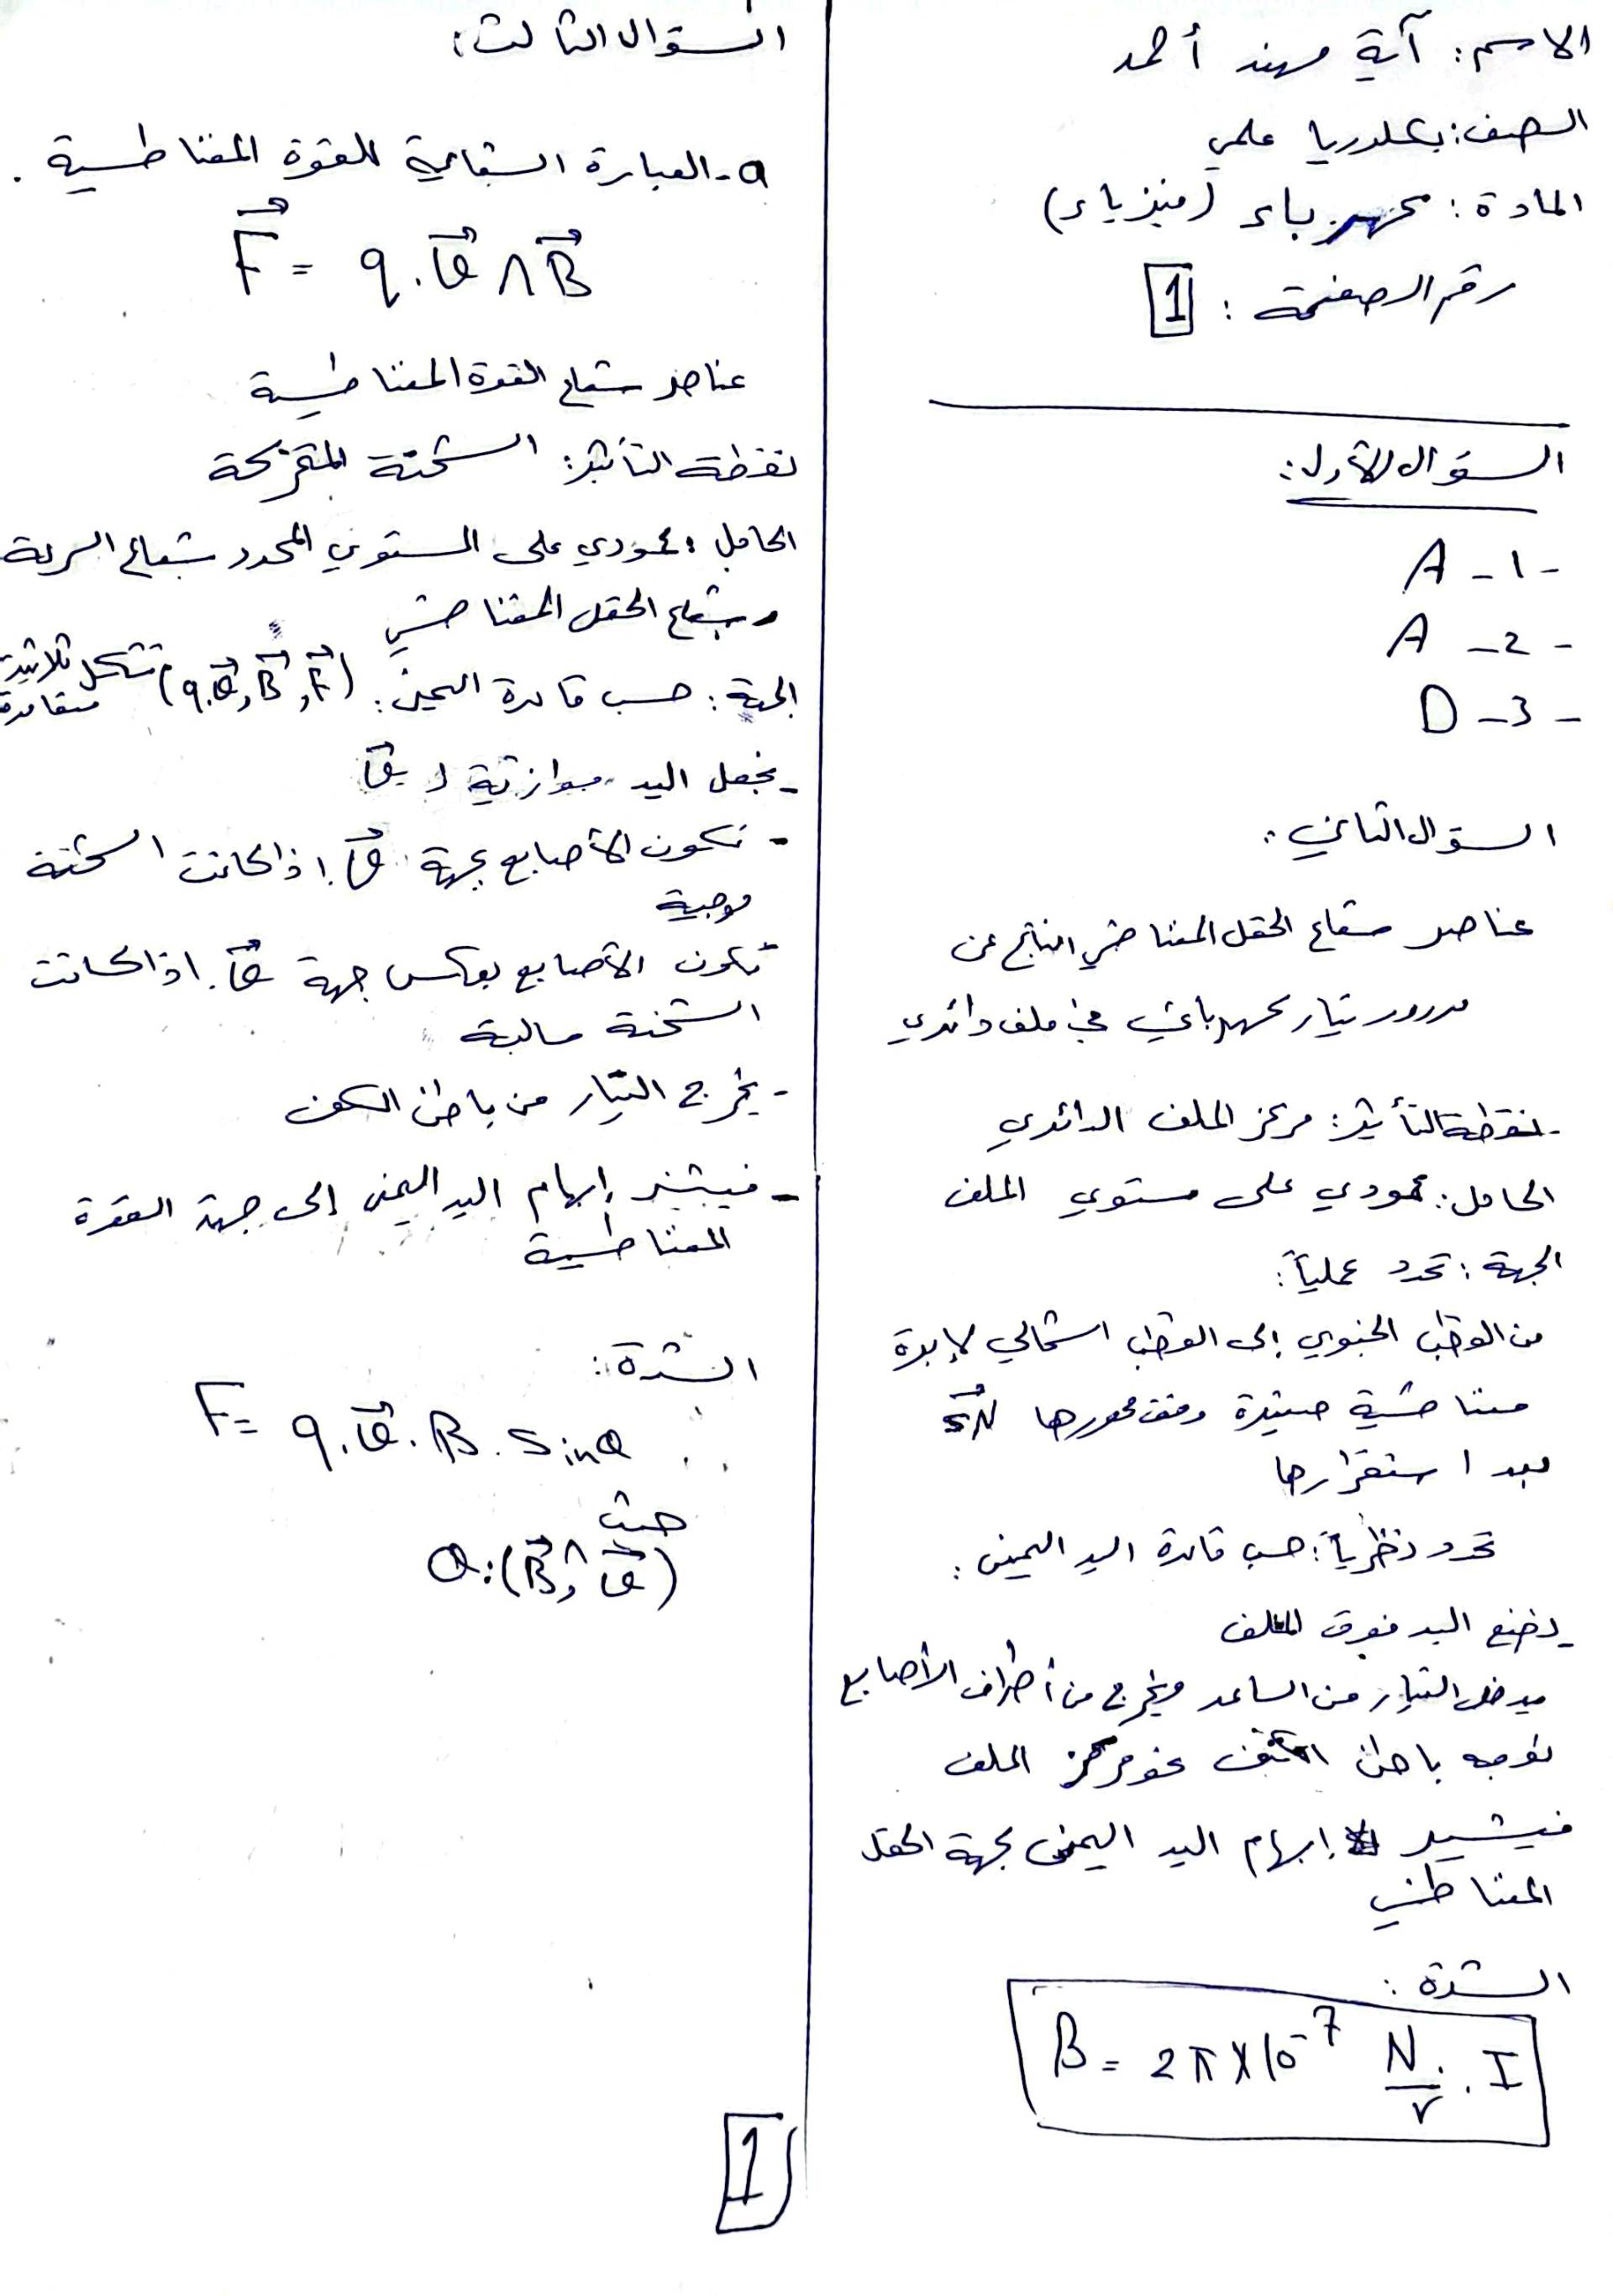 الاسم: آية مهند أحمد
الصف: بكلوريا علمي
المادة: كهرباء (فيزياء)
رقم الصفحة: 1
السؤال الأول:
1 - A -
2 - A -
3 - D -
السؤال الثاني:
عناصر شعاع الحقل المغناطيسي الناتج عن
مرور تيار كهربائي في ملف دائري
- نقطة التأثير: مركز الملف الدائري
الحامل: عمودي على مستوي الملف
الجهة: تحدد عملياً:
من القطب الجنوبي إلى القطب الشمالي لإبرة
مغناطيسية صغيرة وفق محورها SN
بعد استقرارها
تحدد نظرياً: حسب قاعدة اليد اليمنى:
- نضع اليد فوق الملف
يدخل التيار من الساعد ويخرج من أطراف الأصابع
نوجه باطن الكف نحو مركز الملف
فيشير إبهام اليد اليمنى بجهة الحقل
المغناطيسي
الشدة:
B = 2π×10⁻⁷ N/r . I
السؤال الثالث:
a - العبارة الشعاعية للقوة المغناطيسية.
F⃗ = q.v⃗ ∧ B⃗
عناصر شعاع القوة المغناطيسية
نقطة التأثير: الشحنة المتحركة
الحامل: عمودي على المستوي المحدد بشعاع السرعة
وبشعاع الحقل المغناطيسي
الجهة: حسب قاعدة اليمنى: (q.v⃗, B⃗, F⃗) تشكل ثلاثية
- نجعل اليد موازية لـ v⃗
- تكون الأصابع بجهة v⃗ إذا كانت الشحنة
موجبة
تكون الأصابع بعكس جهة v⃗ إذا كانت
الشحنة سالبة
- يخرج التيار من باطن الكف
- فيشير إبهام اليد اليمنى إلى جهة القوة
المغناطيسية
الشدة:
F = q.v⃗.B.sinθ
حيث
θ: (B⃗ ^, v⃗)
1